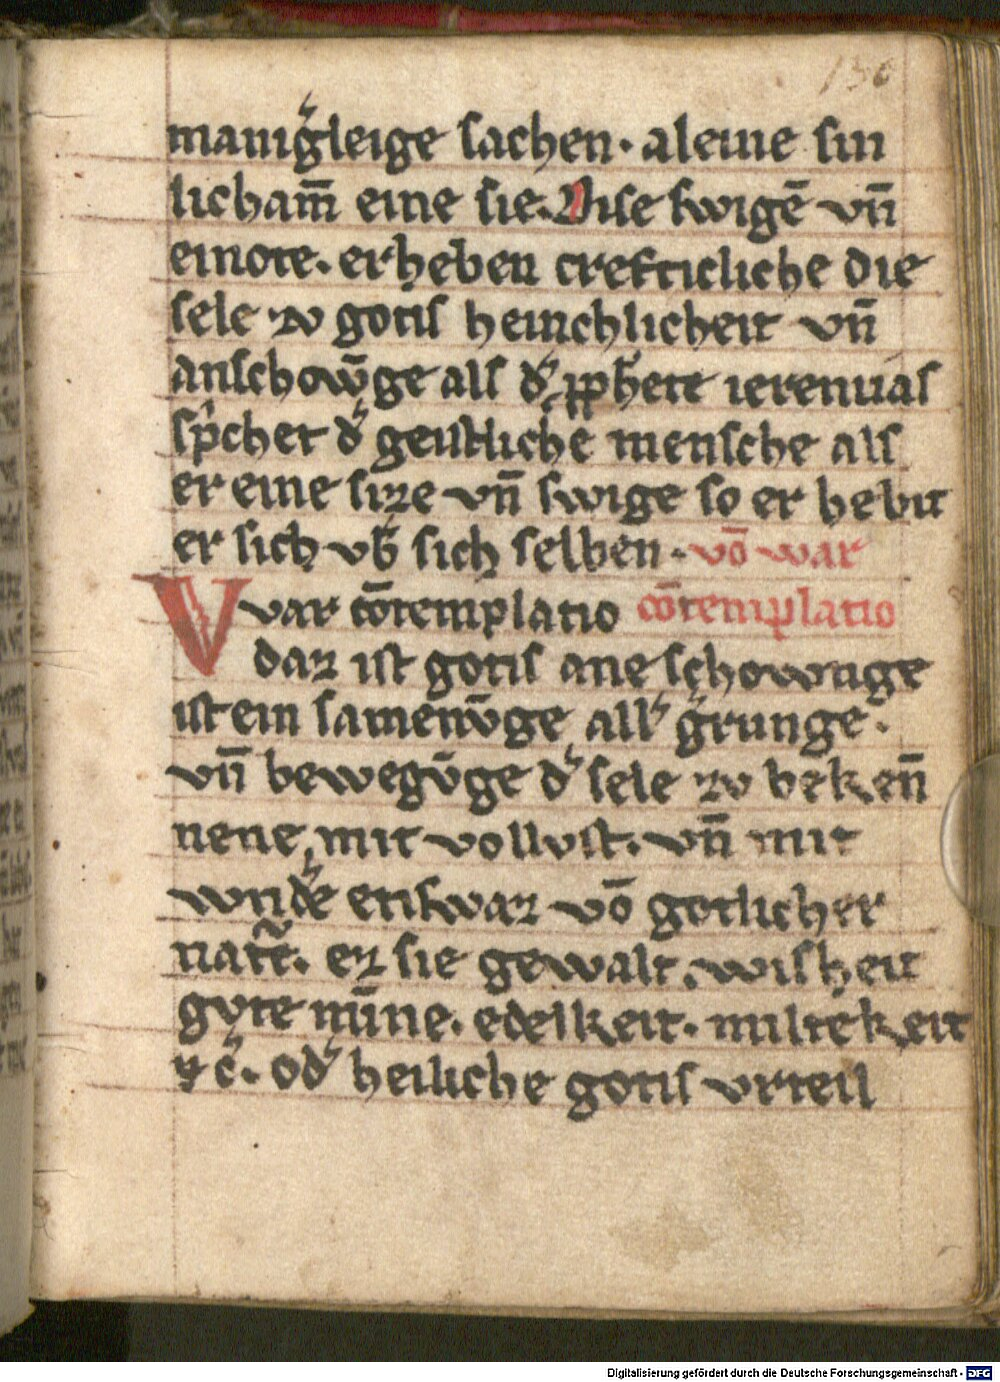 136
manigᷣleige sachen· aleine sin
licham̄ eine sie· Dise swigē vn̄
einote· erheben crefticliche die
sele zv gotis heimchlicheit vn̄
anschowv̄ge als dᷣ pp̄hete ieremias
sp̓chet dᷣ geistliche mensche als
er eine size vn̄ swige so er hebit
er sich vbᷣ sich selben· vō war
Var cōtemplatio cōtemplatio
daz ist gotis ane schowṅge
ist ein samenv̄ge allᷣ gᷣrunge·
vn̄ bewegv̄ge dᷣ sele zv beken̄
nene mit vollvst· vn̄ mit
wndᷣe etiswaz vō gotlicher
natᷣr̄· ez sie gewalt· wisheit
gvte mīne· edelkeit· miltekeit
⁊c̄· odᷣ heiliche gotis vrteil
Digitalisierung gefördert durch die Deutsche Forschungsgemeinschaft - DFG